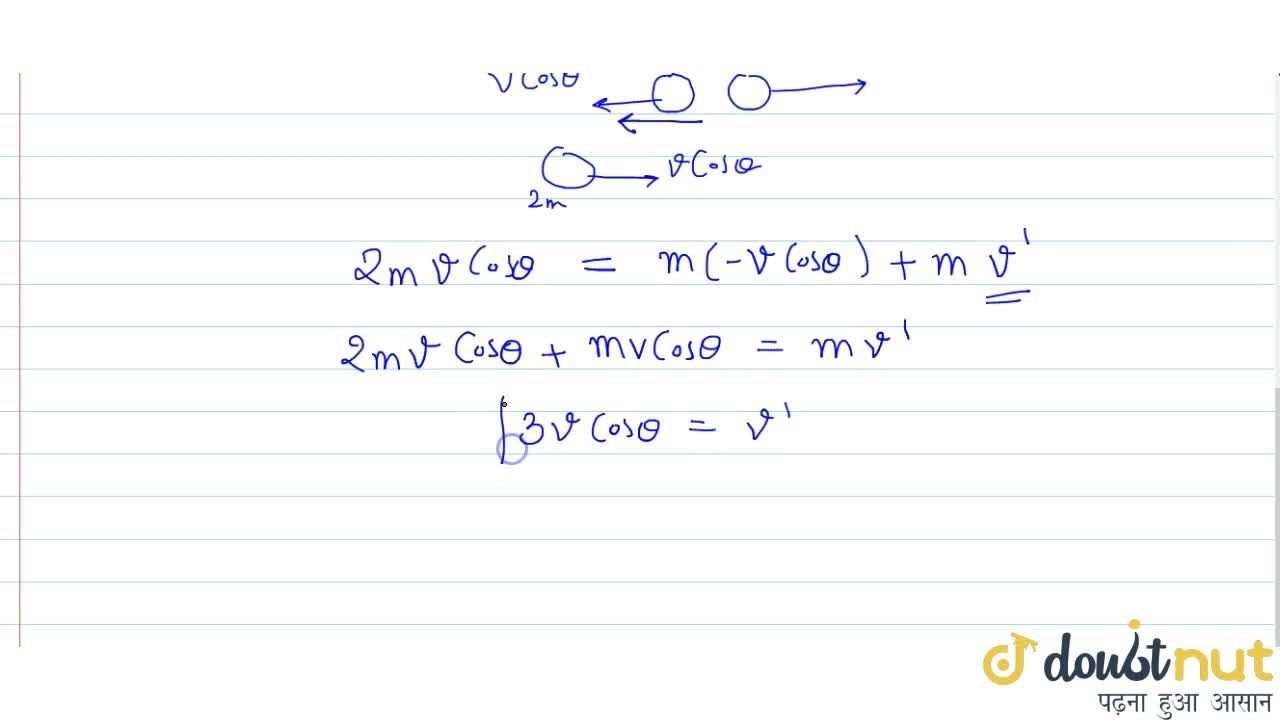 v Cosθ
v Cosθ
2m
2m v Cosθ = m(-v Cosθ) + m v'
2mv Cosθ + mv Cosθ = m v'
3v Cosθ = v'
doubtnut
पढ़ना हुआ आसान